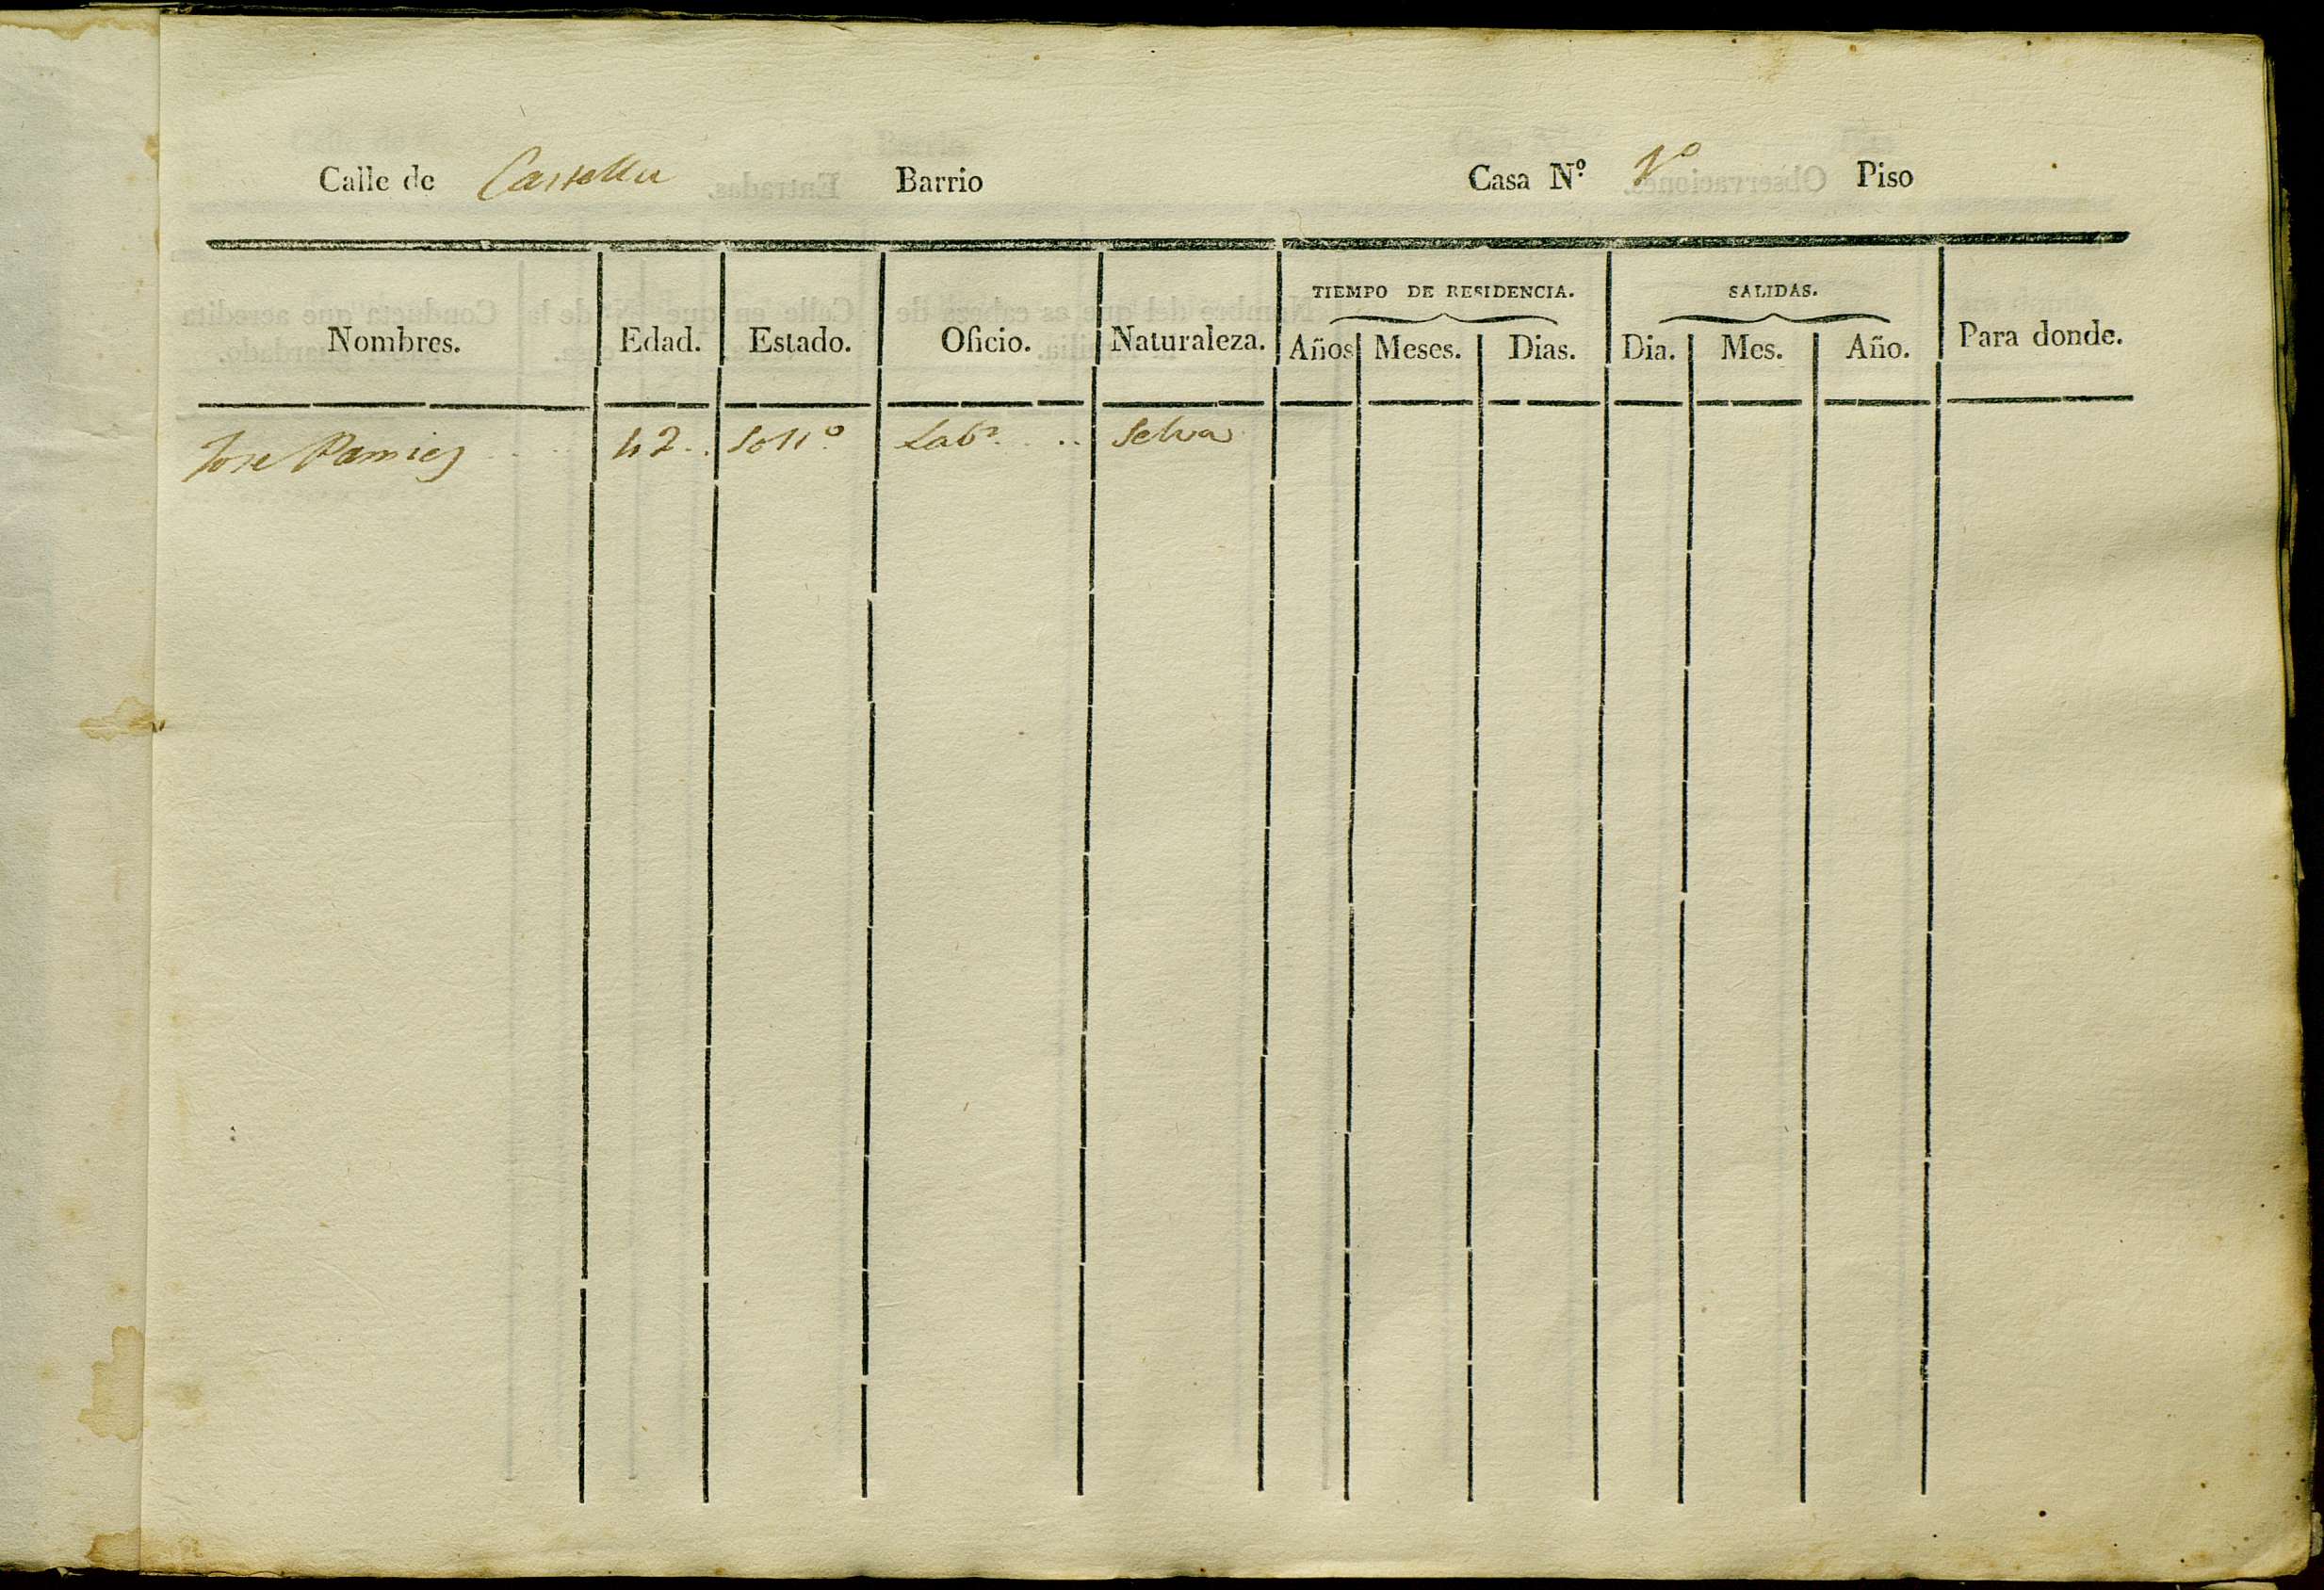 Calle de Barrio Casa Nº Piso
TIEMPO DE RESIDENCIA. SALIDAS.
Nombres. Edad. Estado. Oficio. Naturaleza. Años Meses. Dias. Dia. Mes. Año. Para donde.
Jose Pamies 42 Soltº Labr. Selva